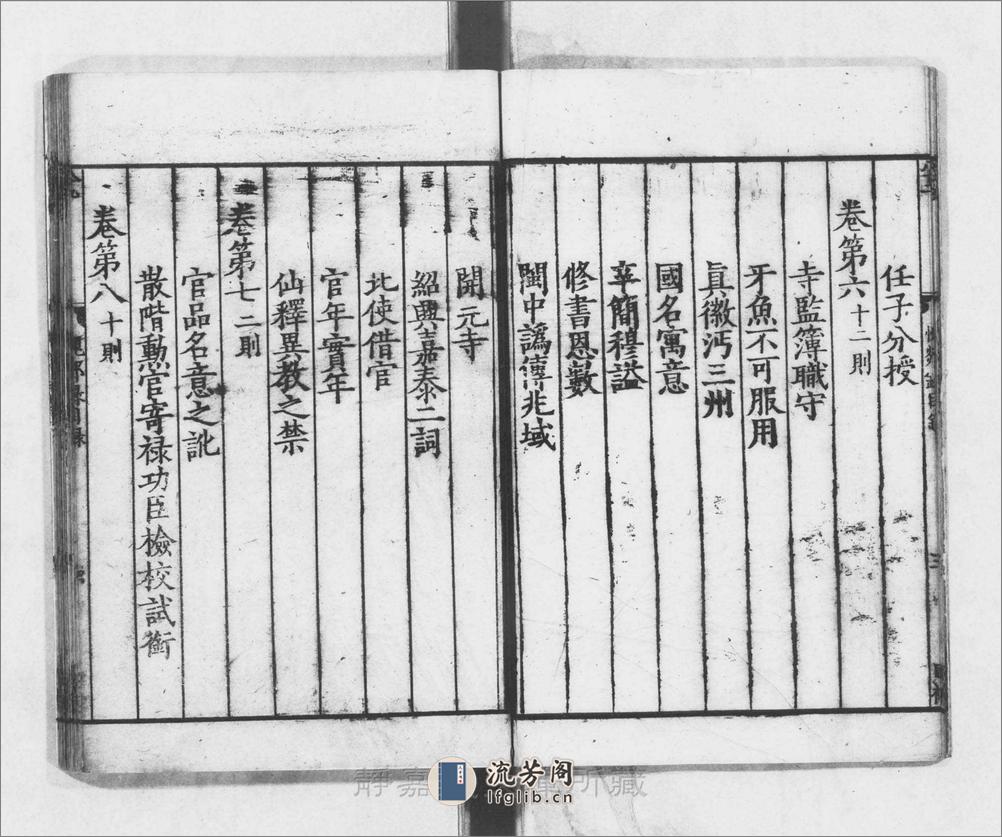 任子分授
卷第六 十二則
寺監簿職守
牙魚不可服用
真徽沔三州
國名寓意
辛簡穆謚
修書恩數
閩中譌傳兆域
開元寺
紹興嘉泰二詞
北使借官
官年實年
仙釋異教之禁
卷第七 二則
官品名意之訛
散階勳官寄祿功臣檢校試銜
卷第八 十則
流芳阁
lfglib.cn